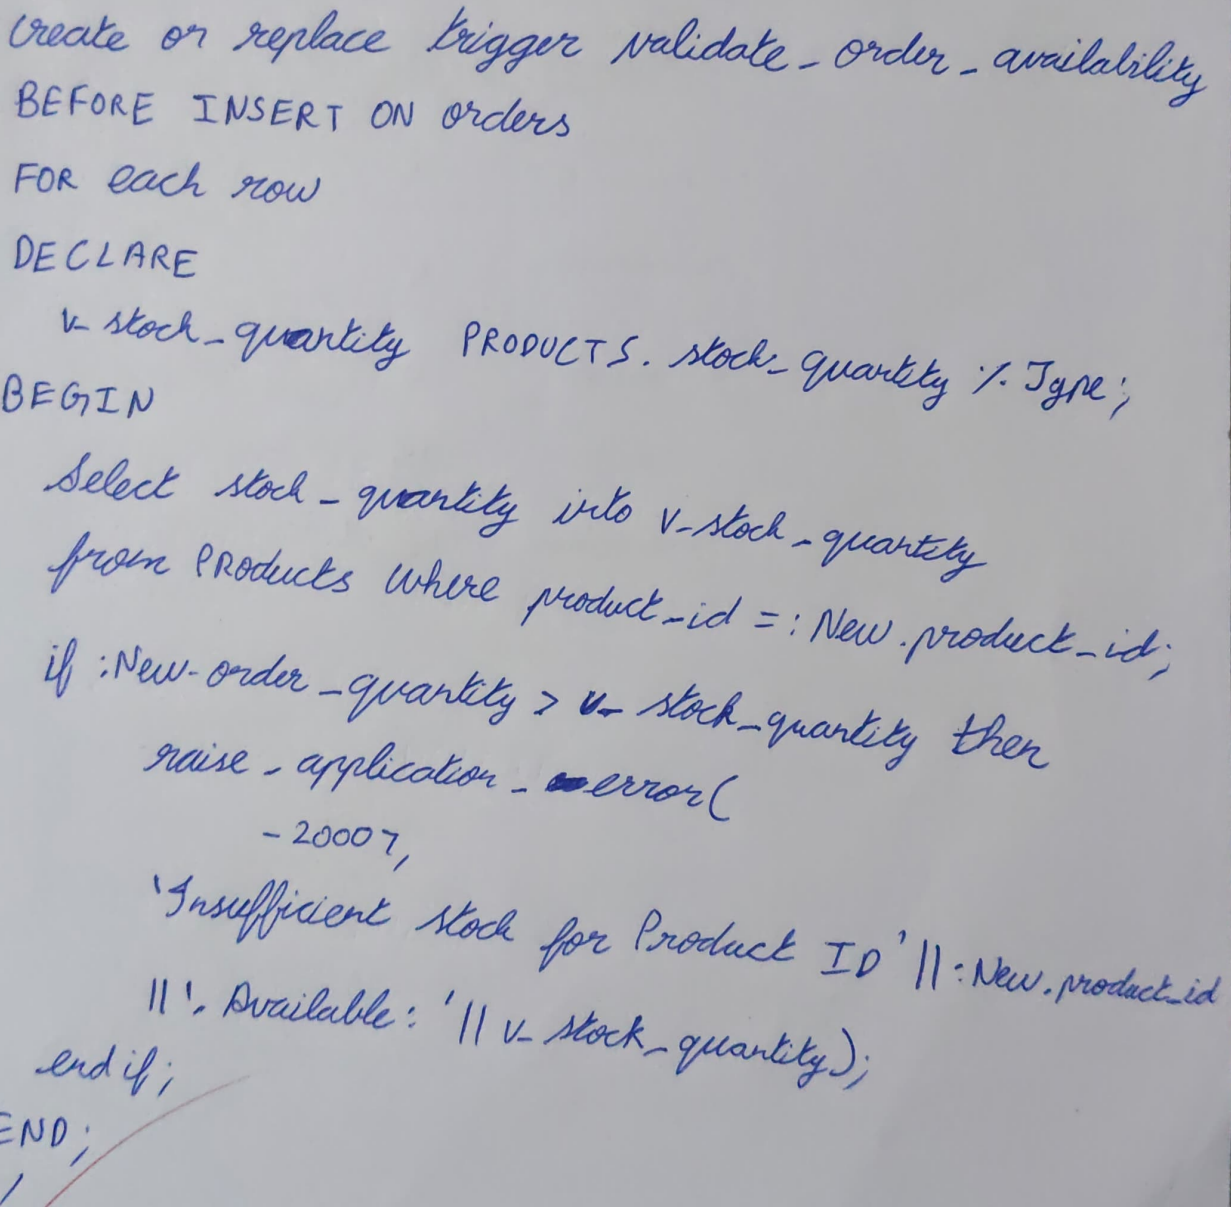 Create or replace trigger validate_order_availability
BEFORE INSERT ON orders
FOR each row
DECLARE
v_stock_quantity PRODUCTS.stock_quantity%Type;
BEGIN
Select stock_quantity into v_stock_quantity
from PRoducts where product_id =:New.product_id;
if :New.order_quantity > v_stock_quantity then
raise_application_error(
-20007,
'Insufficient stock for Product ID'||:New.product_id
||'. Available: '|| v_stock_quantity);
end if;
END;
/